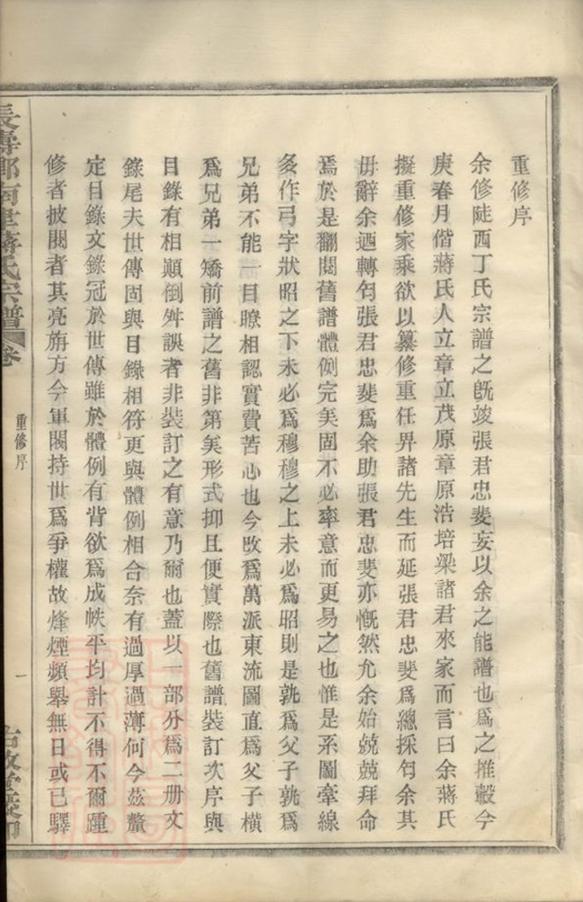 重修序
余修陡西丁氏宗譜之旣竣張君忠斐妄以余之能譜也爲之推轂今
庚春月偕蔣氏人立章立茂原章原浩培梁諸君來家而言曰余蔣氏
擬重修家乘欲以纂修重任畀諸先生而延張君忠斐爲總採匄余其
毋辭余迺轉匄張君忠斐爲余助張君忠斐亦慨然允余始兢兢拜命
焉於是翻閱舊譜體例完美固不必率意而更易之也惟是系圖牽線
多作弓字狀昭之下未必爲穆穆之上未必爲昭則是孰爲父子孰爲
兄弟不能一目瞭相認實費苦心也今改爲萬派東流圖直爲父子橫
爲兄弟一矯前譜之舊非第美形式抑且便實際也舊譜裝訂次序與
目錄有相顚倒舛誤者非裝訂之有意乃爾也蓋以一部分爲二册文
錄尾夫世傳固與目錄相符更與體例相合奈有過厚過薄何今茲釐
定目錄文錄冠於世傳雖於體例有背欲爲成帙平均計不得不爾踵
修者披閱者其亮旃方今軍閥持世爲爭權故烽煙頻舉無日或已驛
長壽鄉南里蔣氏宗譜 卷
重修序
一